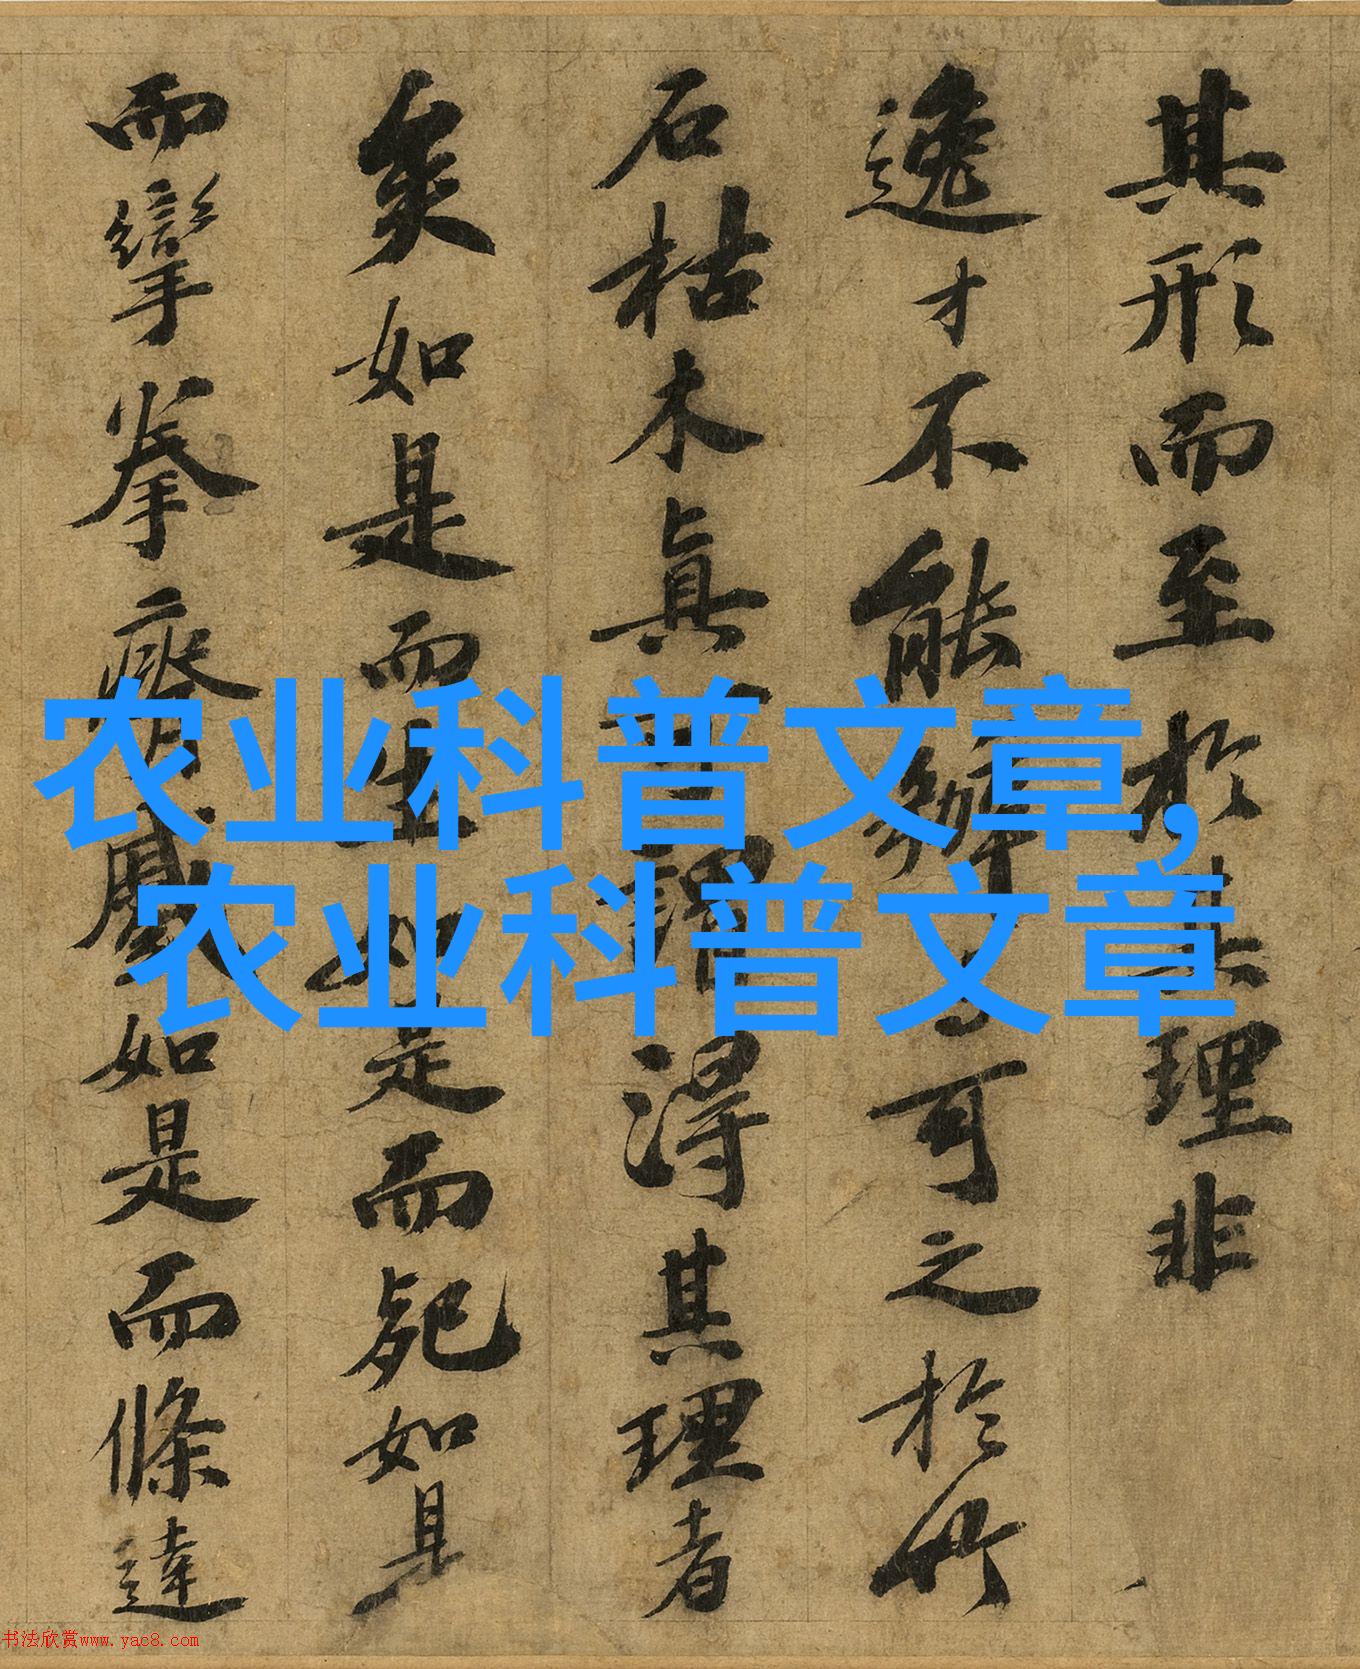 其形而至於其理非
逸才不能辦可之於竹
石枯木真可謂得其理者
矣如是而生如是而死如是
而攣拳瘠蹙如是而條達
农业科普文章,
农业科普文章
书法欣赏www.yac8.com